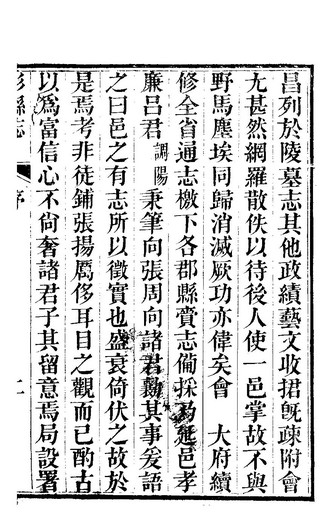 昌列於陵墓志其他政績藝文收捃旣疎附會
尤甚然網羅散佚以待後人使一邑掌故不與
野馬塵埃同歸消滅厥功亦偉矣會　大府續
修全省通志檄下各郡縣賷志備採爰延邑孝
廉呂君調陽秉筆向張周向諸君勷其事爰語
之曰邑之有志所以徵實也盛衰倚伏之故於
是焉考非徒鋪張揚厲侈耳目之觀而已酌古
以爲富信心不尙奢諸君子其留意焉局設署
彭縣志
序
二